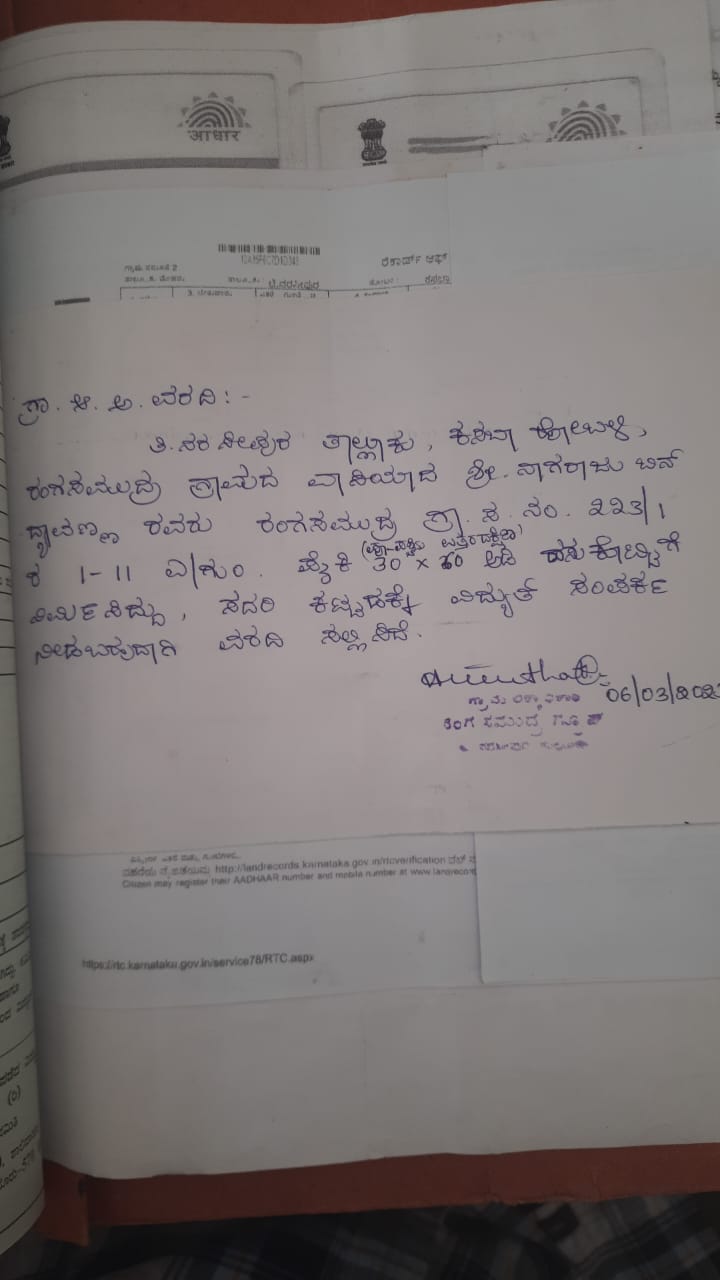 आधार
12A15FEC7D1D343
ರೆಕಾರ್ಡ್ ಆಫ್
ಗ್ರಾಮ ನಮೂನೆ 2
ಟಿ.ನರಸೀಪುರ
ಹೋಬಳಿ :
ಕಸಬಾ
ಗ್ರಾ. ಆ. ಅ. ವರದಿ : -
ತಿ. ನರಸೀಪುರ ತಾಲ್ಲೂಕು, ಕಸಬಾ ಹೋಬಳಿ,
ರಂಗಸಮುದ್ರ ಗ್ರಾಮದ ವಾಸಿಯಾದ ಶ್ರೀ. ನಾಗರಾಜು ಬಿನ್
ದ್ಯಾವಣ್ಣ ರವರು ರಂಗಸಮುದ್ರ ಗ್ರಾ. ಸ. ನಂ. 223/1
ರ 1-11 ಎ/ಗುಂ. ಪೈಕಿ 30 × 60 ಅಡಿ
ನಿರ್ಮಿಸಿದ್ದು, ಸದರಿ ಕಟ್ಟಡಕ್ಕೆ ವಿದ್ಯುತ್ ಸಂಪರ್ಕ
ನೀಡಬಹುದಾಗಿ ವರದಿ ಸಲ್ಲಿಸಿದೆ.
06/03/202
ರಂಗಸಮುದ್ರ
http://landrecords.karnataka.gov.in/rtcverification
Citizen may register their AADHAAR number and mobile number at www.landrecor
https://rtc.karnataka.gov.in/service78/RTC.aspx